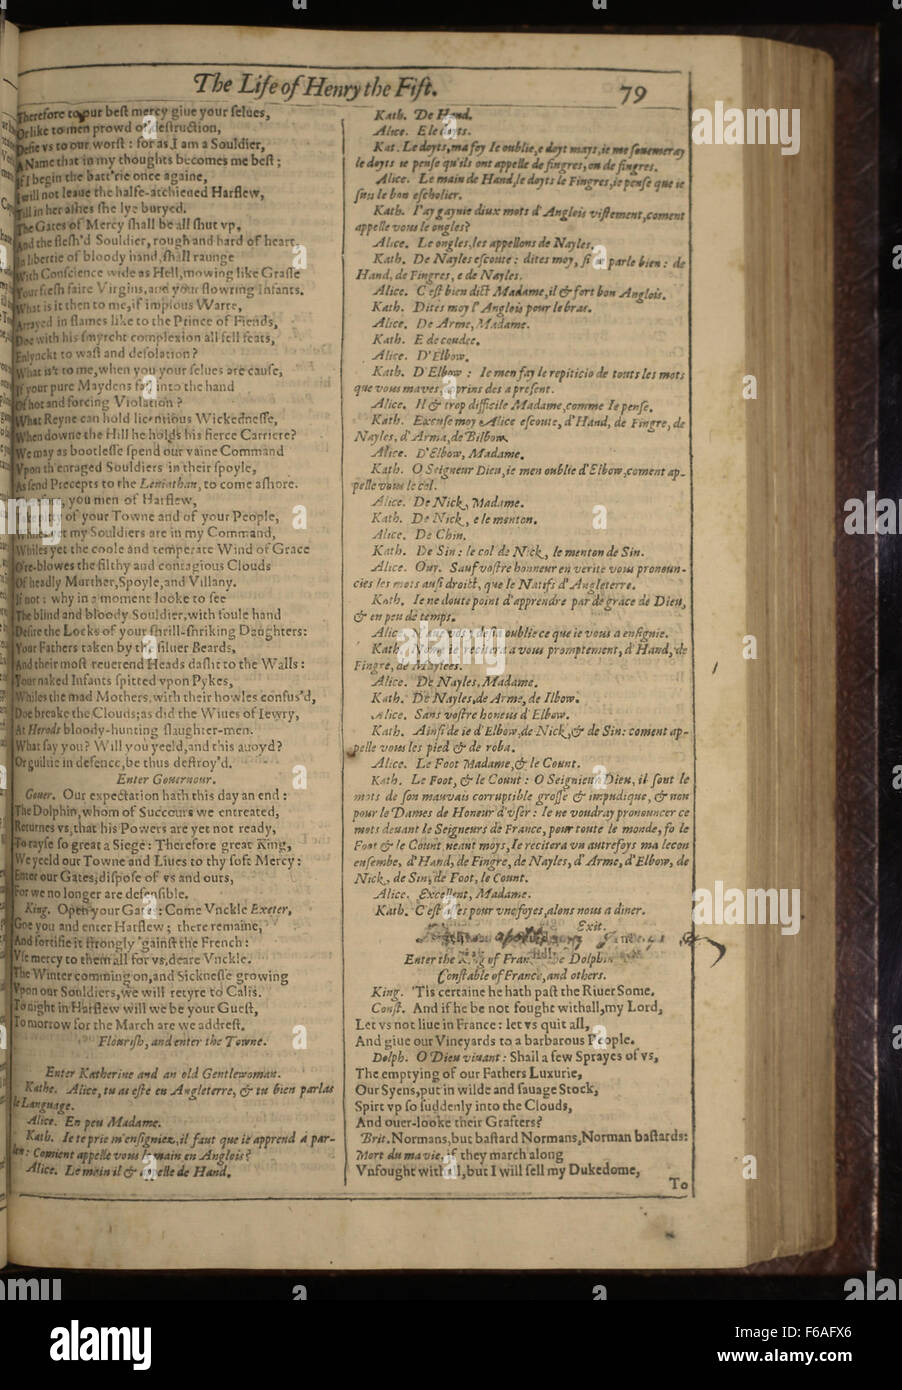 The Life of Henry the Fift.
79
Therefore to our best mercy giue your selues,
Or like to men prowd of destruction,
Defie vs to our worst: for as I am a Souldier,
A Name that in my thoughts becomes me best;
If I begin the batt'rie once againe,
I will not leaue the halfe-atchieued Harflew,
Till in her ashes she lye buryed.
The Gates of Mercy shall be all shut vp,
And the flesh'd Souldier, rough and hard of heart,
In libertie of bloody hand, shall raunge
With Conscience wide as Hell, mowing like Grasse
Your fresh faire Virgins, and your flowring Infants.
What is it then to me, if impious Warre,
Arrayed in flames like to the Prince of Fiends,
Doe with his smyrcht complexion all fell feats,
Enlynckt to wast and desolation?
What is't to me, when you your selues are cause,
If your pure Maydens fall into the hand
Of hot and forcing Violation?
What Reyne can hold licentious Wickednesse,
When downe the Hill he holds his fierce Carriere?
We may as bootlesse spend our vaine Command
Vpon th'enraged Souldiers in their spoyle,
As send Precepts to the Leuiathan, to come ashore.
you men of Harflew,
Take pitty of your Towne and of your People,
Whiles yet my Souldiers are in my Command,
Whiles yet the coole and temperate Wind of Grace
O're-blowes the filthy and contagious Clouds
Of headly Murther, Spoyle, and Villany.
If not: why in a moment looke to see
The blind and bloody Souldier, with foule hand
Desire the Locks of your shrill-shriking Daughters:
Your Fathers taken by the siluer Beards,
And their most reuerend Heads dasht to the Walls:
Your naked Infants spitted vpon Pykes,
Whiles the mad Mothers, with their howles confus'd,
Doe breake the Clouds; as did the Wiues of Iewry,
At Herods bloody-hunting slaughter-men.
What say you? Will you yeeld, and this auoyd?
Or guiltie in defence, be thus destroy'd.
Enter Gouernour.
Gouer. Our expectation hath this day an end:
The Dolphin, whom of Succours we entreated,
Returnes vs, that his Powers are yet not ready,
To rayse so great a Siege: Therefore great King,
We yeeld our Towne and Liues to thy soft Mercy:
Enter our Gates, dispose of vs and ours,
For we no longer are defensible.
King. Open your Gates: Come Vnckle Exeter,
Goe you and enter Harflew; there remaine,
And fortifie it strongly 'gainst the French:
Vse mercy to them all for vs, deare Vnckle.
The Winter comming on, and Sicknesse growing
Vpon our Souldiers, we will retyre to Calis.
To night in Harflew will we be your Guest,
To morrow for the March are we addrest.
Flourish, and enter the Towne.
Enter Katherine and an old Gentlewoman.
Kathe. Alice, tu as este en Angleterre, & tu bien parlas
le Language.
Alice. En peu Madame.
Kath. Ie te prie m'ensigniez, il faut que ie apprend a par-
len: Comient appelle vous le main en Anglois?
Alice. Le main il & appelle de Hand.
Kath. De Hand.
Alice. E le doyts.
Kat. Le doyts, ma foy Ie oublie, e doyt mays, ie me souemeray
le doyts ie pense qu'ils ont appelle de fingres, ou de fingres.
Alice. Le main de Hand, le doyts le Fingres, ie pense que ie
suis le bon escholier.
Kath. I'ay gaynie diux mots d'Anglois vistement, coment
appelle vous le ongles?
Alice. Le ongles, les appellons de Nayles.
Kath. De Nayles escoute: dites moy, si ie parle bien: de
Hand, de Fingres, e de Nayles.
Alice. C'est bien dict Madame, il & fort bon Anglois.
Kath. Dites moy l'Anglois pour le bras.
Alice. De Arme, Madame.
Kath. E de coudee.
Alice. D'Elbow.
Kath. D'Elbow: Ie men fay le repiticio de touts les mots
que vous maves, aprins des a present.
Alice. Il & trop difficile Madame, comme Ie pense.
Kath. Excuse moy Alice escoute, d'Hand, de Fingre, de
Nayles, d'Arma, de Bilbow.
Alice. D'Elbow, Madame.
Kath. O Seigneur Dieu, ie men oublie d'Elbow, coment ap-
pelle vous le col.
Alice. De Nick, Madame.
Kath. De Nick, e le menton.
Alice. De Chin.
Kath. De Sin: le col de Nick, le menton de Sin.
Alice. Ouy. Sauf vostre honneur en verite vous pronoun-
cies les mots ausi droict, que le Natifs d'Angleterre.
Kath. Ie ne doute point d'apprendre par de grace de Dieu,
& en peu de temps.
Alice. N'aue vos y desia oublie ce que ie vous a ensignie.
Kath. Nome ie recitera a vous promptement, d'Hand, de
Fingre, de Maylees.
Alice. De Nayles, Madame.
Kath. De Nayles, de Arme, de Ilbow.
Alice. Sans vostre honeus d'Elbow.
Kath. Ainsi de ie d'Elbow, de Nick, & de Sin: coment ap-
pelle vous les pied & de roba.
Alice. Le Foot Madame, & le Count.
Kath. Le Foot, & le Count: O Seignieur Dieu, il sont le
mots de son mauvais corruptible grosse & impudique, & non
pour le Dames de Honeur d'vser: Ie ne voudray pronouncer ce
mots deuant le Seigneurs de France, pour toute le monde, fo le
Foot & le Count, neant moys, Ie recitera vn autrefoys ma lecon
ensembe, d'Hand, de Fingre, de Nayles, d'Arme, d'Elbow, de
Nick, de Sin, de Foot, le Count.
Alice. Excellent, Madame.
Kath. C'est asses pour vne foyes, alons nous a diner.
Exit.
Enter the King of France, the Dolphin,
Constable of France, and others.
King. 'Tis certaine he hath past the Riuer Some.
Const. And if he be not fought withall, my Lord,
Let vs not liue in France: let vs quit all,
And giue our Vineyards to a barbarous People.
Dolph. O Dieu viuant: Shall a few Sprayes of vs,
The emptying of our Fathers Luxurie,
Our Syens, put in wilde and sauage Stock,
Spirt vp so suddenly into the Clouds,
And ouer-looke their Grafters?
Brit. Normans, but bastard Normans, Norman bastards:
Mort du ma vie, if they march along
Vnfought withall, but I will sell my Dukedome,
To
alamy
alamy stock photo
F6AFX6
www.alamy.com